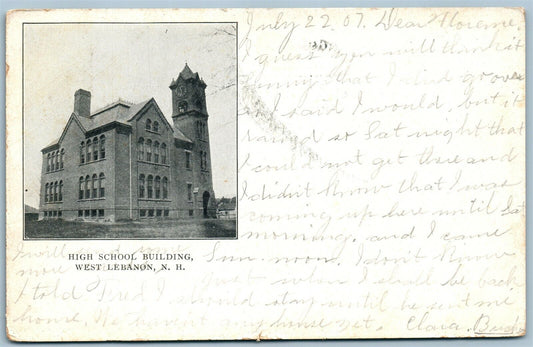 July 22. 07. Dear Florence.
I guess you will think it
funny that I did
as I said I would, but it
rained so Sat night that
I could not get there and
I didn't know that I was
coming up here until Sat
morning. and I came
HIGH SCHOOL BUILDING,
WEST LEBANON, N. H.
Sun. noon. I don't know
just when I shall be back
I told Fred I should stay until he sent me
home. We haven't any house yet. Clara.